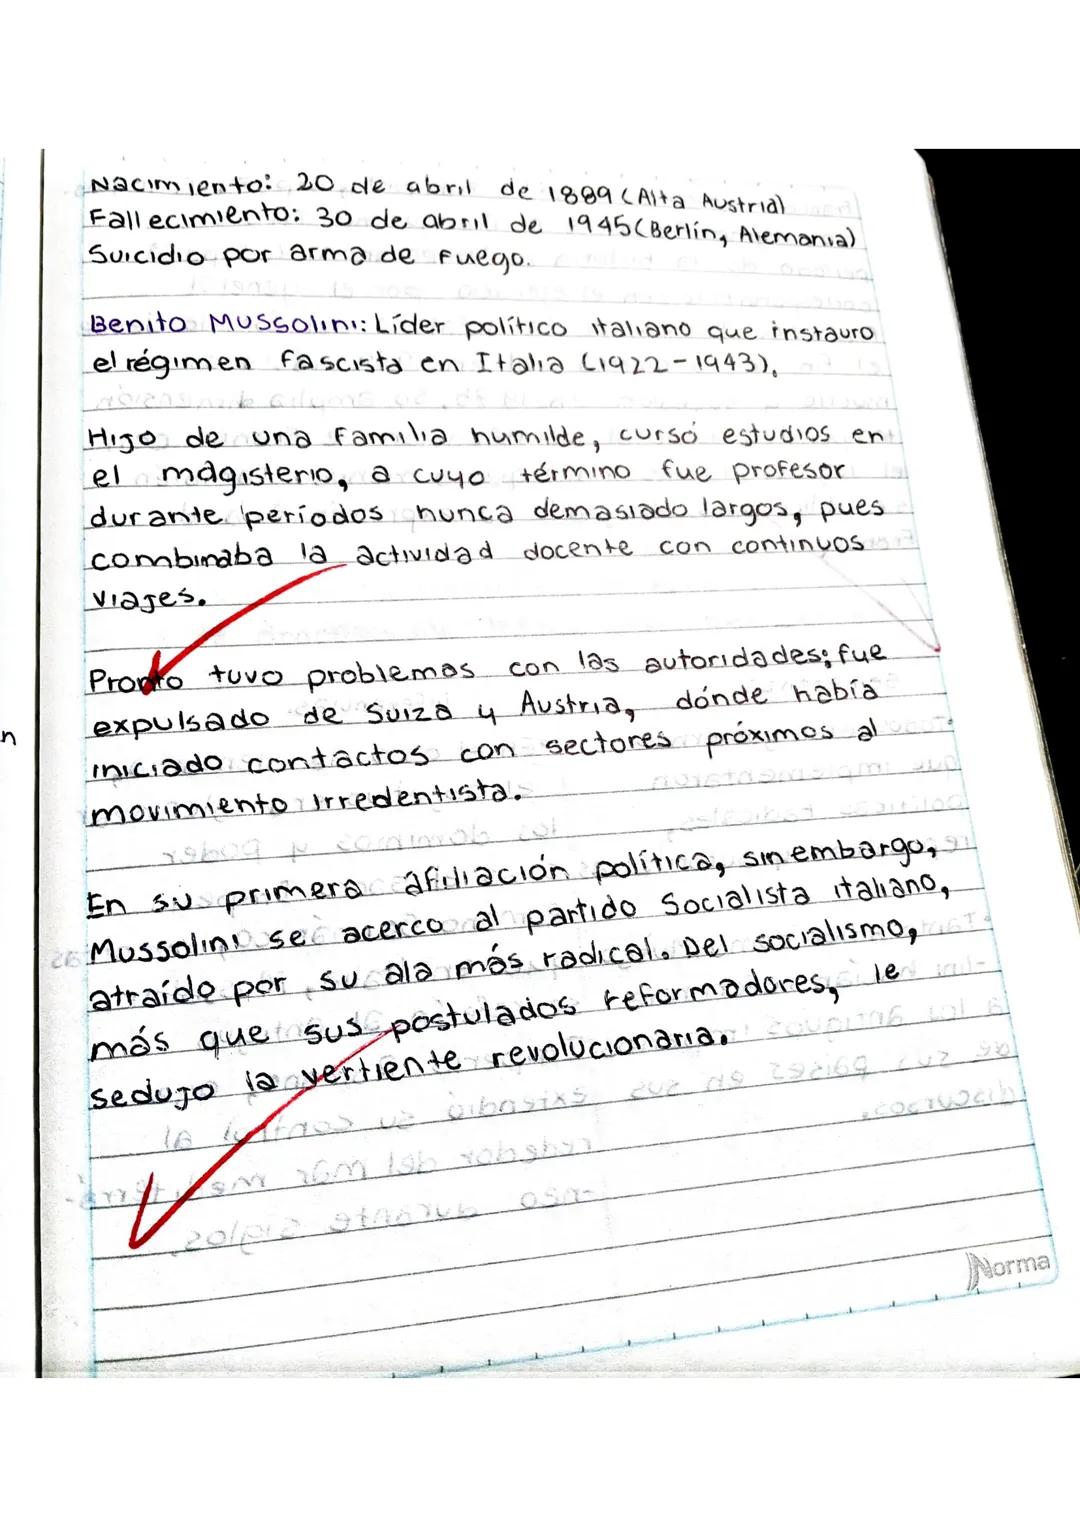 Nacimiento: 20 de abril de 1889 (Alta Austria)
Fallecimiento: 30 de abril de 1945 (Berlín, Alemania)
Suicidio por arma de fuego.
Benito Mussolini: Líder político italiano que instauro
el régimen fascista en Italia (1922-1943).
Hijo de una familia humilde, cursó estudios en
el magisterio, a cuyo término fue profesor
durante períodos nunca demasiado largos, pues
combinaba la actividad docente con continuos
viajes.
Pronto tuvo problemas con las autoridades; fue
expulsado de Suiza y Austria, dónde había
iniciado contactos con sectores próximos al
movimiento irredentista.
n
En su primera afiliación política, sin embargo,
Mussolini se acerco al partido Socialista italiano,
atraído por su ala más radical. Del socialismo,
más que sus postulados reformadores, le
sedujo la vertiente revolucionaria.
Norma